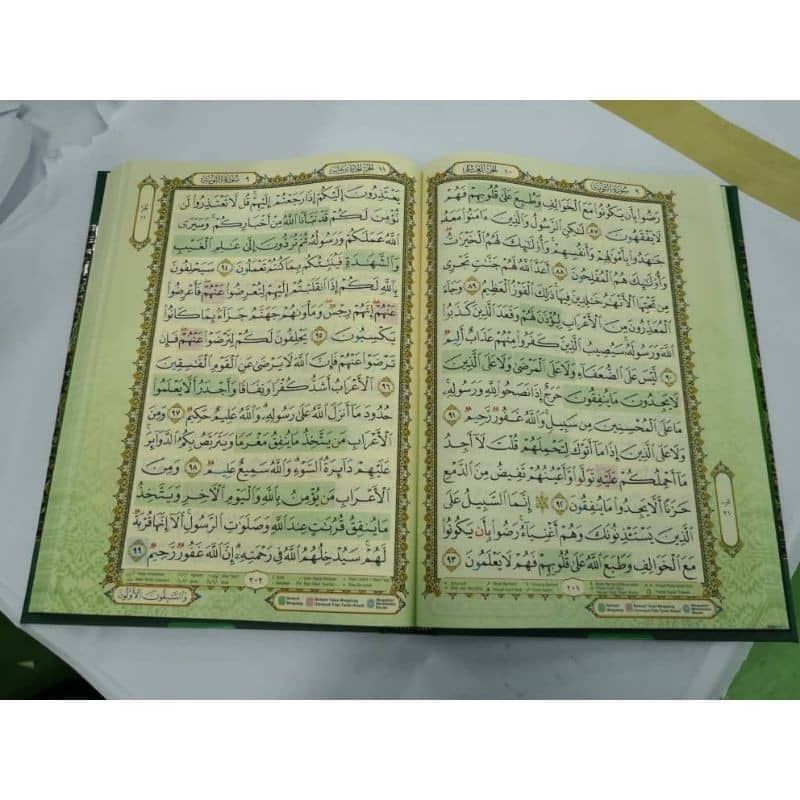 ٩ سُورَةُ التَّوْبَةِ
الجزء العاشر ١٠
رَضُوا بِأَن يَكُونُوا مَعَ الْخَوَالِفِ وَطُبِعَ عَلَىٰ قُلُوبِهِمْ فَهُمْ
لَا يَفْقَهُونَ ٨٧ لَٰكِنِ الرَّسُولُ وَالَّذِينَ ءَامَنُوا مَعَهُ
جَٰهَدُوا بِأَمْوَٰلِهِمْ وَأَنفُسِهِمْ وَأُولَٰئِكَ لَهُمُ الْخَيْرَٰتُ
وَأُولَٰئِكَ هُمُ الْمُفْلِحُونَ ٨٨ أَعَدَّ اللَّهُ لَهُمْ جَنَّٰتٍ تَجْرِي
مِن تَحْتِهَا الْأَنْهَٰرُ خَٰلِدِينَ فِيهَا ذَٰلِكَ الْفَوْزُ الْعَظِيمُ ٨٩ وَجَاءَ
الْمُعَذِّرُونَ مِنَ الْأَعْرَابِ لِيُؤْذَنَ لَهُمْ وَقَعَدَ الَّذِينَ كَذَبُوا
اللَّهَ وَرَسُولَهُ سَيُصِيبُ الَّذِينَ كَفَرُوا مِنْهُمْ عَذَابٌ أَلِيمٌ
٩٠ لَّيْسَ عَلَى الضُّعَفَاءِ وَلَا عَلَى الْمَرْضَىٰ وَلَا عَلَى الَّذِينَ
لَا يَجِدُونَ مَا يُنفِقُونَ حَرَجٌ إِذَا نَصَحُوا لِلَّهِ وَرَسُولِهِ
مَا عَلَى الْمُحْسِنِينَ مِن سَبِيلٍ وَاللَّهُ غَفُورٌ رَّحِيمٌ ٩١
وَلَا عَلَى الَّذِينَ إِذَا مَا أَتَوْكَ لِتَحْمِلَهُمْ قُلْتَ لَا أَجِدُ
مَا أَحْمِلُكُمْ عَلَيْهِ تَوَلَّوا وَّأَعْيُنُهُمْ تَفِيضُ مِنَ الدَّمْعِ
حَزَنًا أَلَّا يَجِدُوا مَا يُنفِقُونَ ٩٢ إِنَّمَا السَّبِيلُ عَلَى
الَّذِينَ يَسْتَـْٔذِنُونَكَ وَهُمْ أَغْنِيَاءُ رَضُوا بِأَن يَكُونُوا
مَعَ الْخَوَالِفِ وَطَبَعَ اللَّهُ عَلَىٰ قُلُوبِهِمْ فَهُمْ لَا يَعْلَمُونَ ٩٣
٢٠١
٩ سُورَةُ التَّوْبَةِ
الجزء الحادي عشر ١١
يَعْتَذِرُونَ إِلَيْكُمْ إِذَا رَجَعْتُمْ إِلَيْهِمْ قُل لَّا تَعْتَذِرُوا لَن
نُّؤْمِنَ لَكُمْ قَدْ نَبَّأَنَا اللَّهُ مِنْ أَخْبَارِكُمْ وَسَيَرَى
اللَّهُ عَمَلَكُمْ وَرَسُولُهُ ثُمَّ تُرَدُّونَ إِلَىٰ عَٰلِمِ الْغَيْبِ
وَالشَّهَٰدَةِ فَيُنَبِّئُكُم بِمَا كُنتُمْ تَعْمَلُونَ ٩٤ سَيَحْلِفُونَ
بِاللَّهِ لَكُمْ إِذَا انقَلَبْتُمْ إِلَيْهِمْ لِتُعْرِضُوا عَنْهُمْ فَأَعْرِضُوا
عَنْهُمْ إِنَّهُمْ رِجْسٌ وَمَأْوَىٰهُمْ جَهَنَّمُ جَزَاءً بِمَا كَانُوا
يَكْسِبُونَ ٩٥ يَحْلِفُونَ لَكُمْ لِتَرْضَوْا عَنْهُمْ فَإِن
تَرْضَوْا عَنْهُمْ فَإِنَّ اللَّهَ لَا يَرْضَىٰ عَنِ الْقَوْمِ الْفَٰسِقِينَ
٩٦ الْأَعْرَابُ أَشَدُّ كُفْرًا وَنِفَاقًا وَأَجْدَرُ أَلَّا يَعْلَمُوا
حُدُودَ مَا أَنزَلَ اللَّهُ عَلَىٰ رَسُولِهِ وَاللَّهُ عَلِيمٌ حَكِيمٌ ٩٧ وَمِنَ
الْأَعْرَابِ مَن يَتَّخِذُ مَا يُنفِقُ مَغْرَمًا وَيَتَرَبَّصُ بِكُمُ الدَّوَائِرَ
عَلَيْهِمْ دَائِرَةُ السَّوْءِ وَاللَّهُ سَمِيعٌ عَلِيمٌ ٩٨ وَمِنَ
الْأَعْرَابِ مَن يُؤْمِنُ بِاللَّهِ وَالْيَوْمِ الْآخِرِ وَيَتَّخِذُ
مَا يُنفِقُ قُرُبَٰتٍ عِندَ اللَّهِ وَصَلَوَٰتِ الرَّسُولِ أَلَا إِنَّهَا قُرْبَةٌ
لَّهُمْ سَيُدْخِلُهُمُ اللَّهُ فِي رَحْمَتِهِ إِنَّ اللَّهَ غَفُورٌ رَّحِيمٌ ٩٩
٢٠٢
وَالسَّٰبِقُونَ الْأَوَّلُونَ